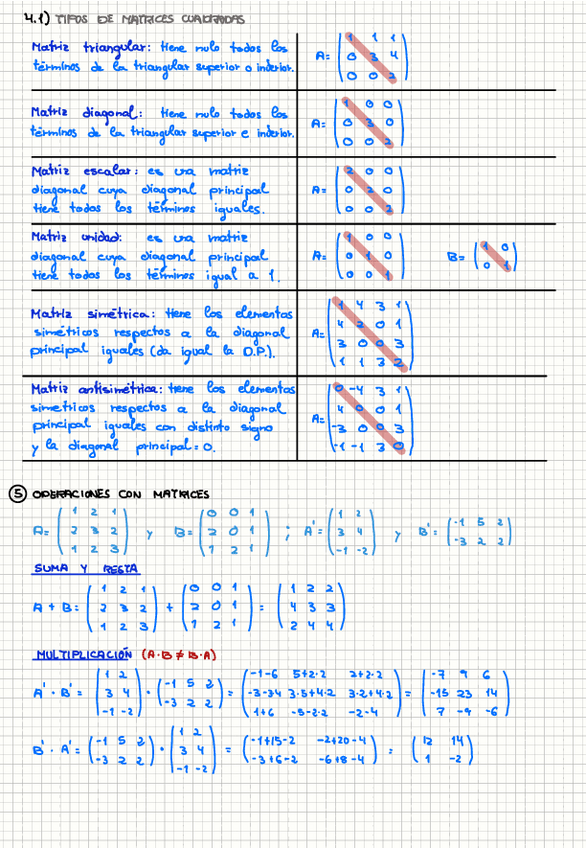 4.1) TIPOS DE MATRICES CUADRADAS
Matriz triangular: tiene nulo todos los
términos de la triangular superior o inferior.
A= ( 1 1 1
0 3 4
0 0 2 )
Matriz diagonal: tiene nulo todos los
términos de la triangular superior e inferior.
A= ( 1 0 0
0 3 0
0 0 2 )
Matriz escalar: es una matriz
diagonal cuya diagonal principal
tiene todos los términos iguales.
A= ( 2 0 0
0 2 0
0 0 2 )
Matriz unidad: es una matriz
diagonal cuya diagonal principal
tiene todos los términos igual a 1.
A= ( 1 0 0
0 1 0
0 0 1 )
B= ( 1 0
0 1 )
Matriz simétrica: tiene los elementos
simétricos respectos a la diagonal
principal iguales (da igual la D.P.).
A= ( 1 4 3 1
4 2 0 1
3 0 0 3
1 1 3 2 )
Matriz antisimétrica: tiene los elementos
simetricos respectos a la diagonal
principal iguales con distinto signo
y la diagonal principal = 0.
A= ( 0 -4 3 1
4 0 0 1
-3 0 0 3
-1 -1 3 0 )
5 OPERACIONES CON MATRICES
A= ( 1 2 1
2 3 2
1 2 3 ) y B= ( 0 0 1
2 0 1
1 2 1 ) ; A'= ( 1 2
3 4
-1 -2 ) y B'= ( -1 5 2
-3 2 2 )
SUMA Y RESTA
A + B = ( 1 2 1
2 3 2
1 2 3 ) + ( 0 0 1
2 0 1
1 2 1 ) = ( 1 2 2
4 3 3
2 4 4 )
MULTIPLICACIÓN (A·B ≠ B·A)
A' · B' = ( 1 2
3 4
-1 -2 ) · ( -1 5 2
-3 2 2 ) = ( -1-6 5+2·2 2+2·2
-3-34 3·5+4·2 3·2+4·2
1+6 -5-2·2 -2-4 ) = ( -7 9 6
-15 23 14
7 -9 -6 )
B' · A' = ( -1 5 2
-3 2 2 ) · ( 1 2
3 4
-1 -2 ) = ( -1+15-2 -2+20-4
-3+6-2 -6+8-4 ) = ( 12 14
1 -2 )